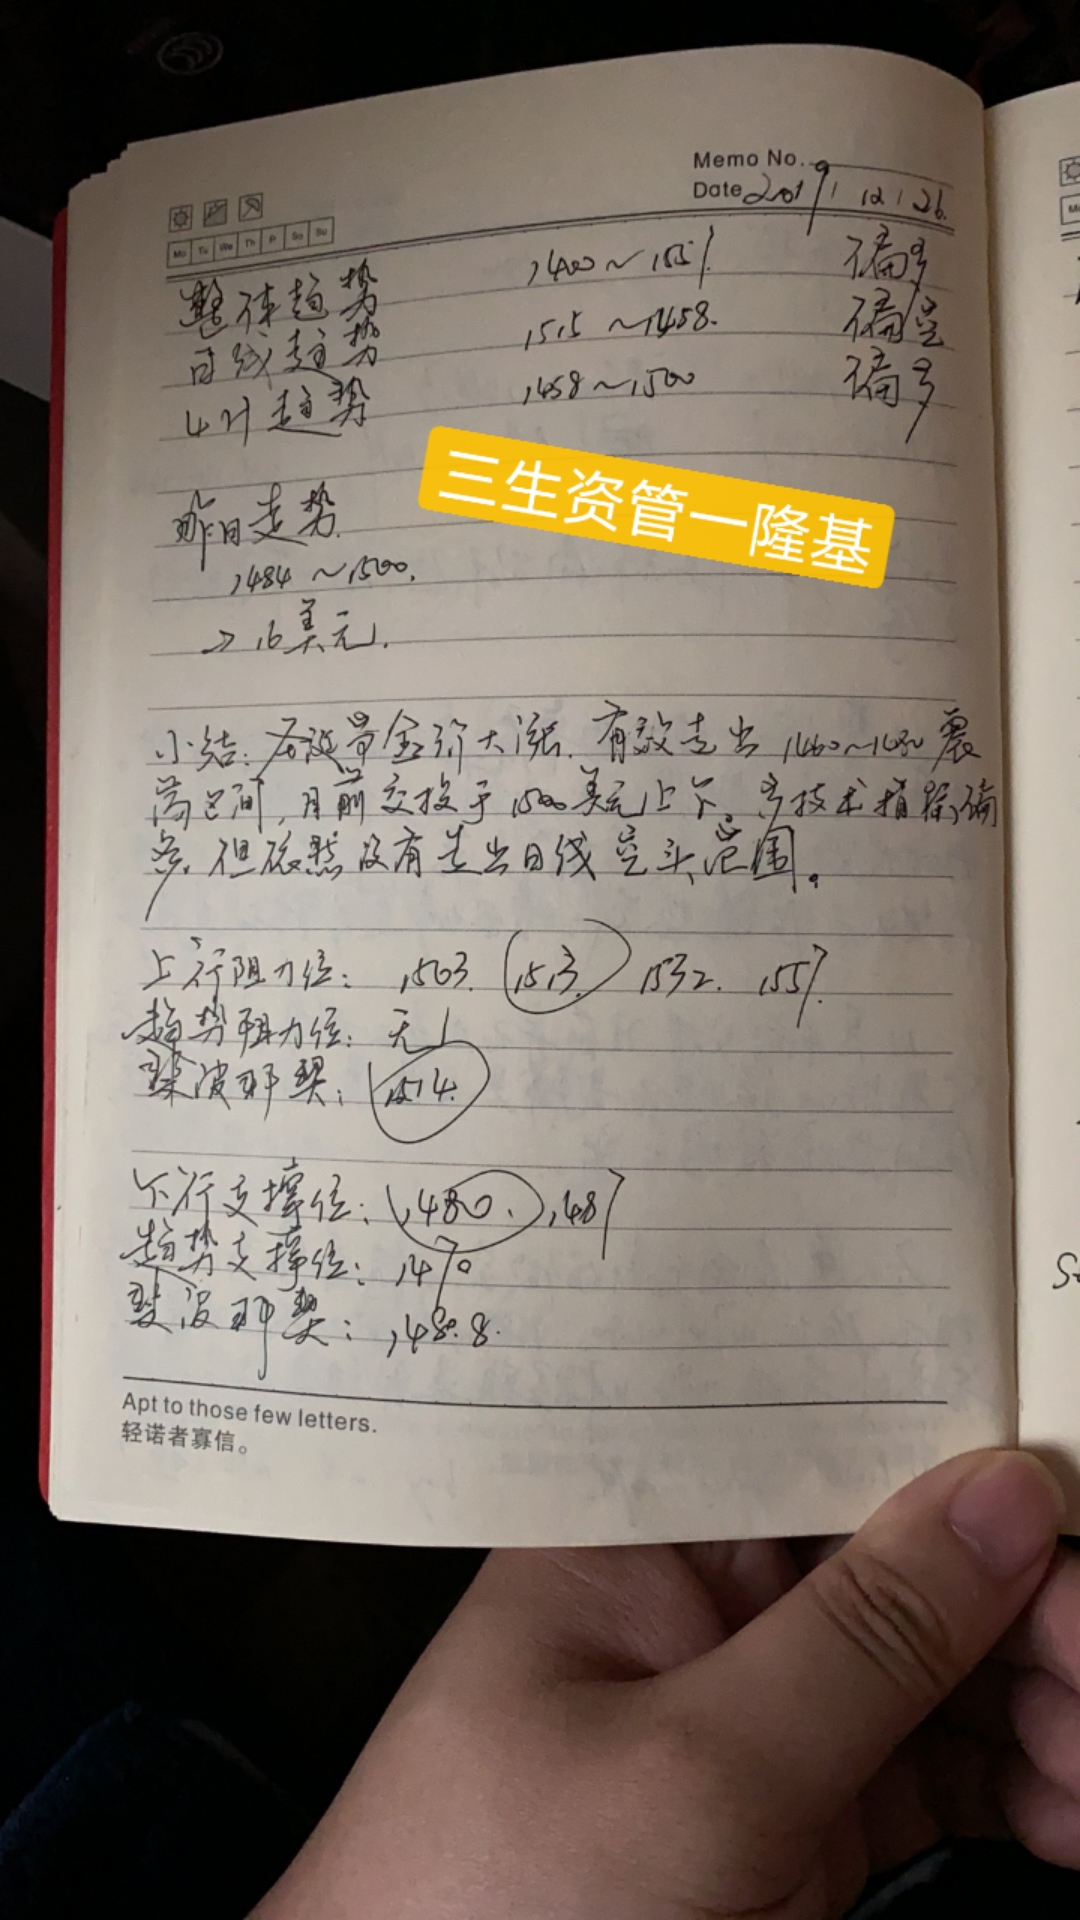 Memo No.
Date 2019 / 12 / 26.
Mo Tu We Th Fr Sa Su
整体趋势 1400~1557 偏多
日线趋势 1515~1458. 偏空
4H趋势 1458~1500 偏多
三生资管一隆基
昨日走势.
1484~1500.
16美元.
小结: 圣诞 金价大涨. 有效走出 1460~1480 震
荡区间, 目前交投于1500美元上下. 多技术指标偏
多. 但依然没有走出日线空头范围。
上行阻力位: 1503. 1513. 1532. 1557.
趋势阻力位: 无
斐波那契: 1514.
下行支撑位: 1480. 1487
趋势支撑位: 1470
斐波那契: 1480.8.
Apt to those few letters.
轻诺者寡信。